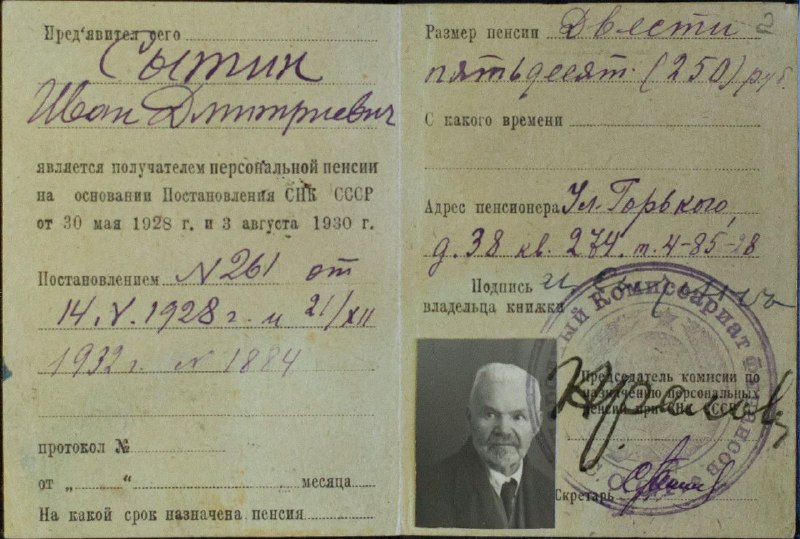 Пред'явител сего
Сытин
Иван Дмитриевич
является получателем персональной пенсии
на основании Постановления СНК СССР
от 30 мая 1928 г. и 3 августа 1930 г.
Постановлением N 261 от
14.V.1928 г. и 21/XII
1932 г. N 1884
протокол №
от „ “ месяца
На какой срок назначена пенсия
2
Размер пенсии Двести
пятьдесят (250) руб.
С какого времени
Адрес пенсионера Ул. Горького,
д. 38 кв. 274. т. 4-85-28
Подпись
владельца книжки
Председатель комиссии по
назначению персональных
пенсий при СНК СССР
Секретарь
Комиссариат Финансов